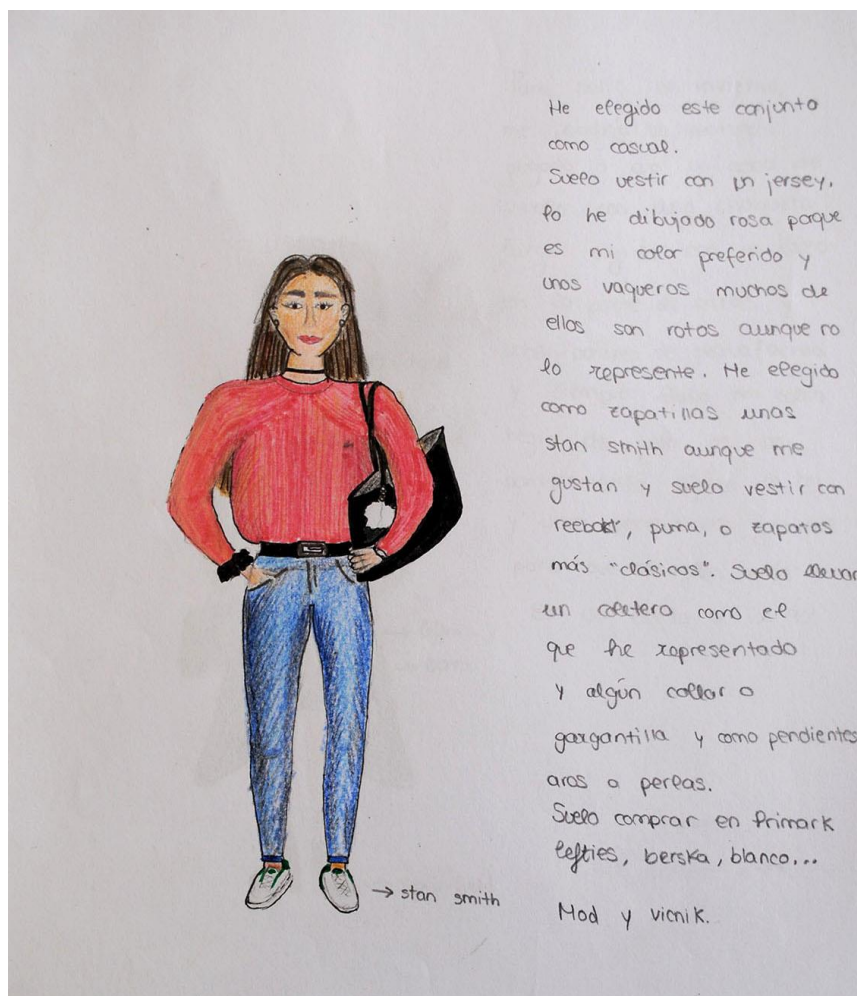 He elegido este conjunto
como casual.
Suelo vestir con un jersey,
lo he dibujado rosa porque
es mi color preferido y
unos vaqueros muchos de
ellos son rotos aunque no
lo represente. He elegido
como zapatillas unas
stan smith aunque me
gustan y suelo vestir con
reebok, puma, o zapatos
más "clásicos". Suelo llevar
un coletero como el
que he representado
y algún collar o
gargantilla y como pendientes
aros o perlas.
Suelo comprar en Primark
lefties, berska, blanco...
→ stan smith
Mod y vicnik.